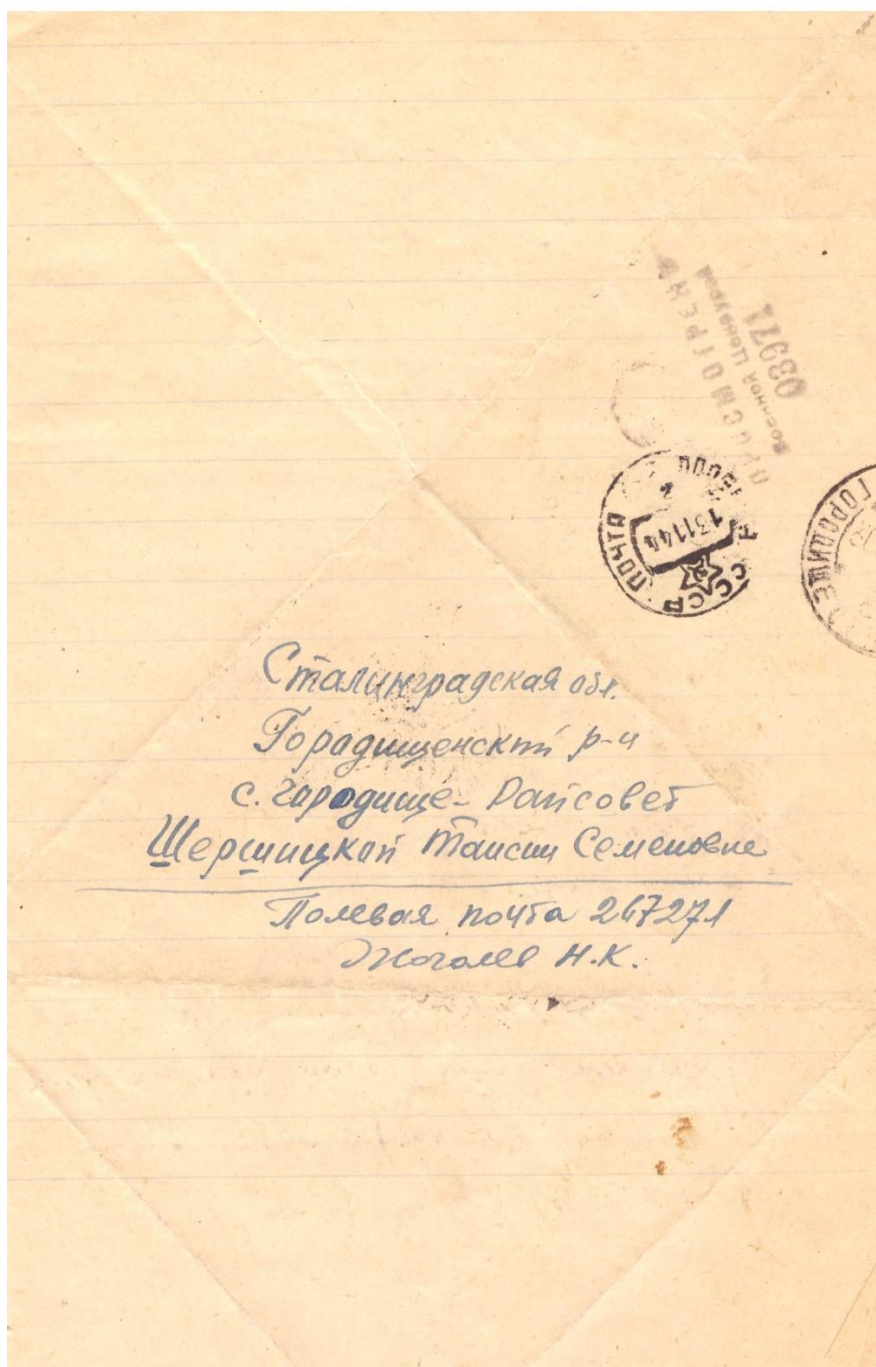 ПРОСМОТРЕНО
Военной Цензурой
03971
СССР ПОЧТА
131144
ГОРОДИЩЕ
Сталинградская обл.
Горадищенский р-н
с. Городище - Райсовет
Шершицкой Таисии Семеновне
Полевая почта 267271
Жоголев Н.К.